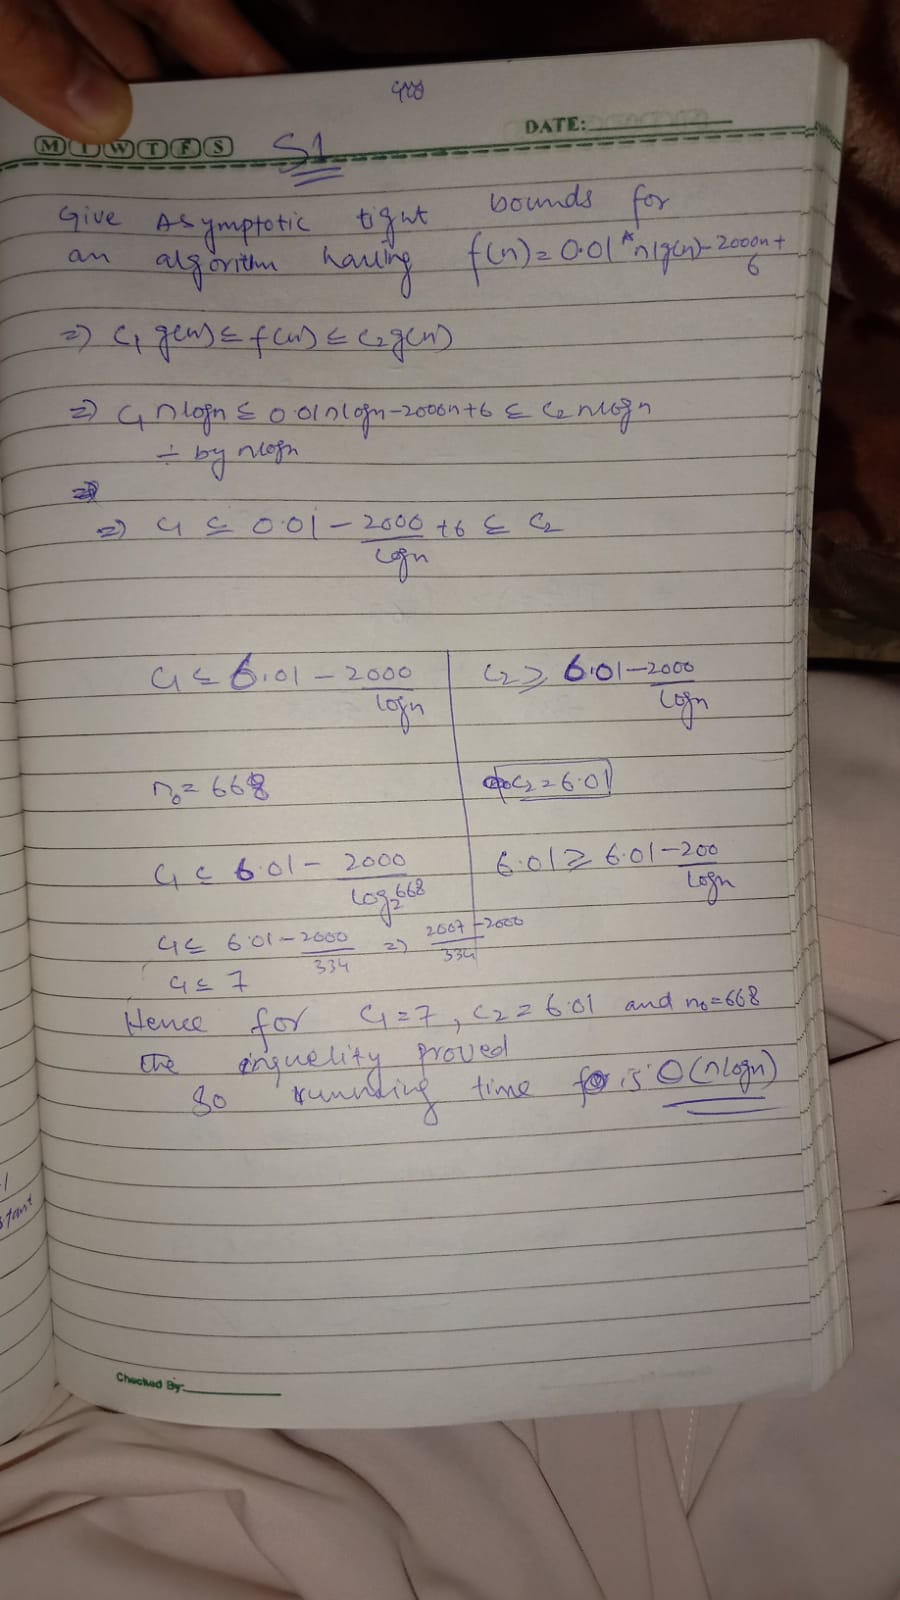 DATE:
M T W T F S
S1
Give Asymptotic tight bounds for
an algorithm having f(n) = 0.01*nlg(n)-2000n+
6
=) C1 g(n) ≤ f(n) ≤ C2 g(n)
=) C1 nlogn ≤ 0.01nlogn-2000n+6 ≤ C2 nlogn
÷ by nlogn
=) C1 ≤ 0.01 - 2000/logn +6 ≤ C2
C1 ≤ 6.01 - 2000/logn
C2 ≥ 6.01 - 2000/logn
n0 = 668
C2 = 6.01
C1 ≤ 6.01 - 2000/log2 668
6.01 ≥ 6.01 - 200/logn
C1 ≤ 6.01 - 2000/334 =) 2007-2000/334
C1 ≤ 7
Hence for C1=7, C2=6.01 and n0=668
the inquelity proved
So running time is O(nlogn)
stant
Checked By: